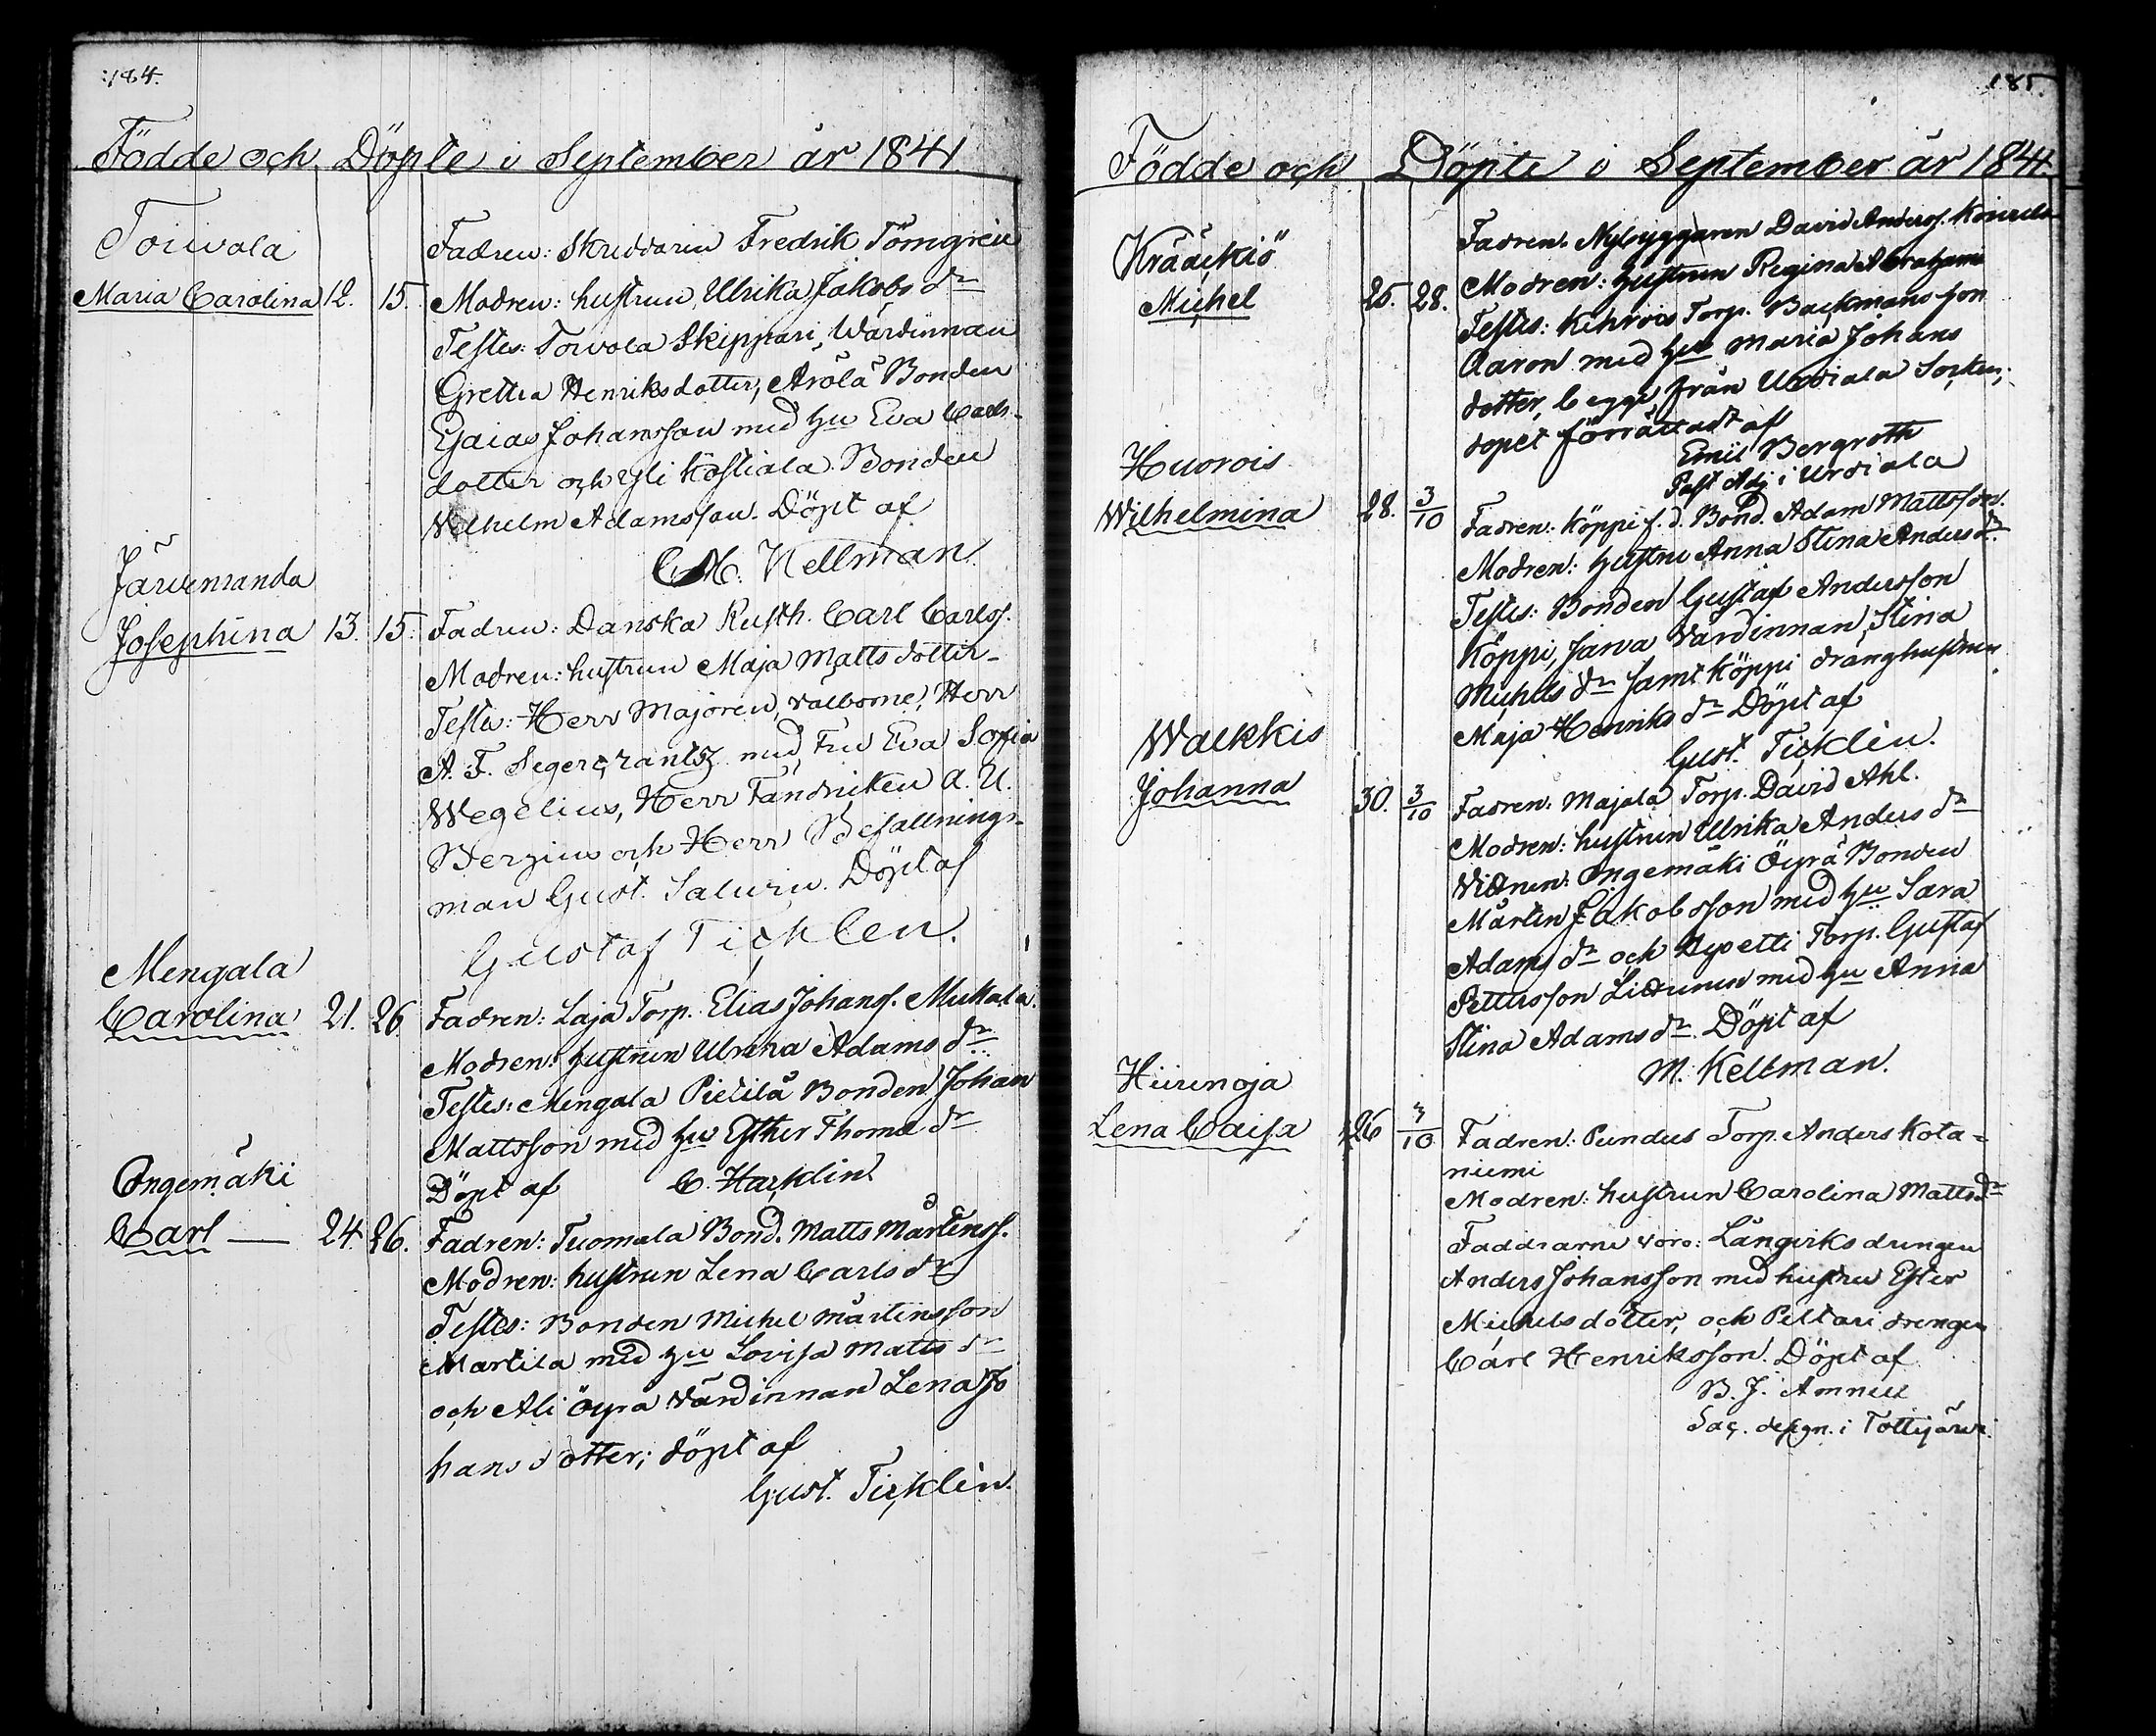 184.
Födde och Döpte i September år 1841.
Toivola
Maria Carolina 12. 15.
Fadren: Skreddaren Fredrik Törngren
Modren: hustrun Ulrika Jakobs dr
Testes: Toivola Skeppari, Wärdinnan
Gretta Henriksdotter, Arola Bonden
Esaias Johansson med hu Eva Carls-
dotter och Yli Kostiala Bonden
Wilhelm Adamsson. Döpt af
M. Kellman.
Järvenranda
Josephina 13. 15.
Fadren: Danska Rusth. Carl Carlss.
Modren: hustrun Maja Mattsdotter
Testes: Herr Majoren, välborne, Herr
A. F. Segercrantz med Fru Eva Sofia
Wegelius, Herr Fändriken A. U.
Bergius och Herr Befallnings-
man Gust. Salvin. Döpt af
Gustaf Ticklen.
Mengala
Carolina 21. 26
Fadren: Laja Torp. Elias Johanss. Mukala.
Modren: hustrun Ulrika Adams dr
Testes: Mengala Pietilä Bonden Johan
Mattsson med hu Esther Thomæ dr
Döpt af C. Hacklin
Ongemäki
Carl — 24. 26.
Fadren: Tuomala Bond. Matts Mårtenss.
Modren: hustrun Lena Carls dr
Testes: Bonden Michel Mårtensson
Martila med hu Lovisa Matts dr
och Ali Öyrä Värdinnan Lena Jo
hansdotter; döpt af
Gust. Ticklén.
185.
Födde och Döpte i September år 1841.
Krääckiö
Michel 25. 28.
Fadren. Nybyggaren David Anderss.
Modren: hustrun Regina Abrahams
Testes: Kehrois Torp. Backmans son
Aaron med hu Maria Johans
dotter, begge från Urdiala Socken;
dopet förrättadt af
Emil Bergroth
Past. Adj. i Urdiala
Huorois
Wilhelmina 28. 3/10
Fadren: Köppi f. d. Bond. Adam Mattsson.
Modren: hustru Anna Stina Anders dr.
Testes: Bonden Gustaf Andersson
Köppi, Järva Värdinnan Stina
Michels dr samt Köppi dränghustrun
Maja Henriks dr Döpt af
Gust. Ticklén.
Walkkis
Johanna 30. 3/10
Fadren: Majala Torp. David Ahl.
Modren: hustrun Ulrika Anders dr
Vittnen: Ongemäki Öyrä Bonden
Mårten Jakobsson med hu Sara
Adams dr och Torp. Gustaf
Pettersson med hu Anna
Stina Adams dr. Döpt af
M. Kellman.
Hiirenoja
Lena Caisa 26 3/10
Fadren: Pundus Torp. Anders Kota-
niemi
Modren: hustrun Carolina Matts dr
Faddrarne voro: Långviks drengen
Anders Johansson med hustru Ester
Michelsdotter, och Peltari drengen
Carl Henriksson. Döpt af
B. J. Amnell
Sac. design. i Tottijärvi.